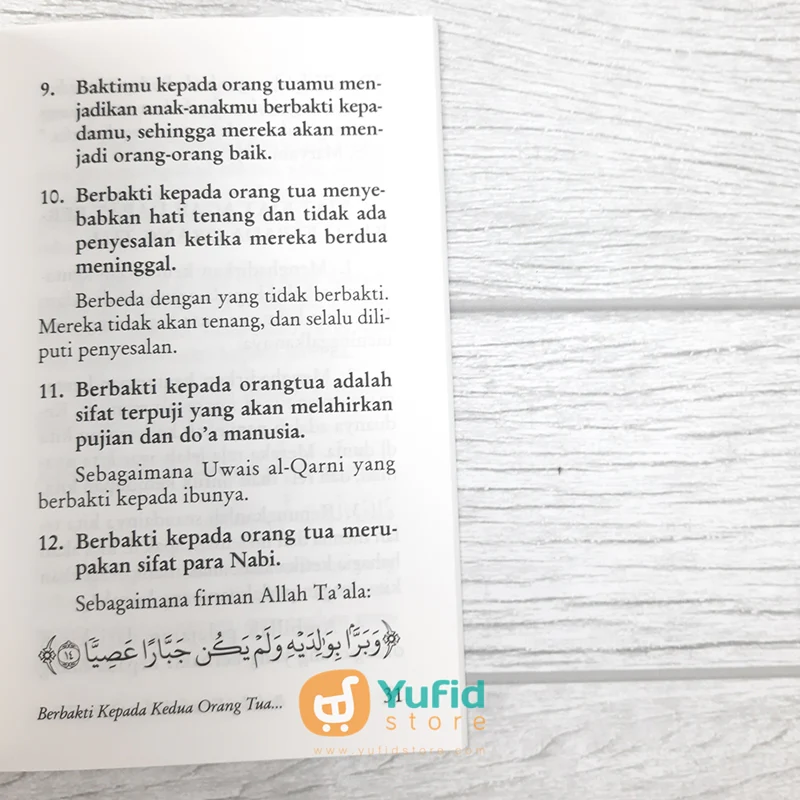 9. Baktimu kepada orang tuamu men-
jadikan anak-anakmu berbakti kepa-
damu, sehingga mereka akan men-
jadi orang-orang baik.
10. Berbakti kepada orang tua menye-
babkan hati tenang dan tidak ada
penyesalan ketika mereka berdua
meninggal.
Berbeda dengan yang tidak berbakti.
Mereka tidak akan tenang, dan selalu dili-
puti penyesalan.
11. Berbakti kepada orangtua adalah
sifat terpuji yang akan melahirkan
pujian dan do’a manusia.
Sebagaimana Uwais al-Qarni yang
berbakti kepada ibunya.
12. Berbakti kepada orang tua meru-
pakan sifat para Nabi.
Sebagaimana firman Allah Ta’ala:
﴿وَبَرًّۢا بِوَٰلِدَيْهِ وَلَمْ يَكُن جَبَّارًا عَصِيًّا ١٤﴾
Berbakti Kepada Kedua Orang Tua... 31
Yufid
store
www.yufidstore.com